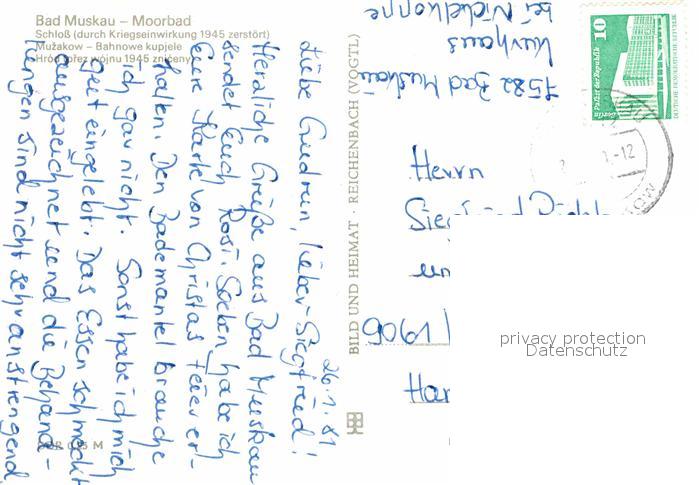 Bad Muskau – Moorbad
Schloß (durch Kriegseinwirkung 1945 zerstört)
Mužakow – Bahnowe kupjele
Hród přez wójnu 1945 zničeny
26.1.81
Liebe Gudrun, lieber Siegfried!
Herzliche Grüße aus Bad Muskau
sendet Euch Rosi. Soeben habe ich
Eure Karte von Christas Feier er-
halten. Den Bademantel brauche
ich gar nicht. Sonst habe ich mich
gut eingelebt. Das Essen schmeckt
ausgezeichnet und die Behand-
lungen sind nicht sehr anstrengend
M
BILD UND HEIMAT · REICHENBACH (VOGTL)
7582 Bad Muskau
Kurhaus
bei
10
Palast der Republik
Berlin
DEUTSCHE DEMOKRATISCHE REPUBLIK
-12
Herrn
un
1906
Har
privacy protection
Datenschutz